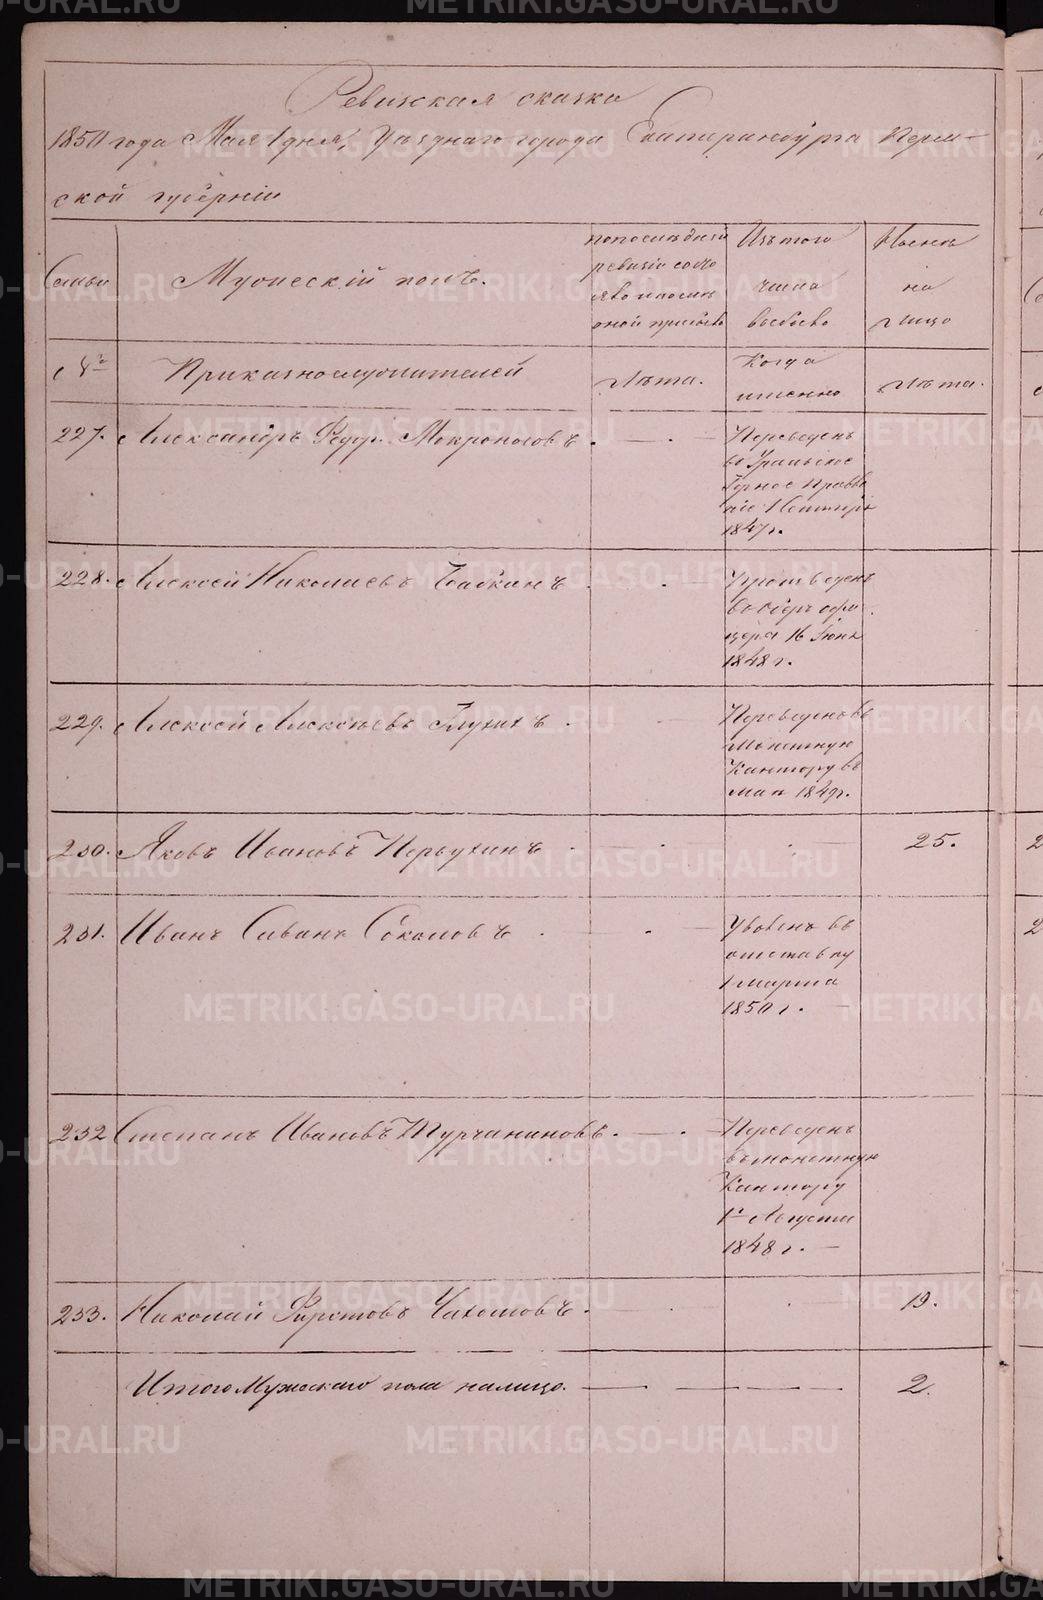 Ревизская сказка
1850 года Мая 1 дня, Уезднаго города Екатеринбурга Перм-
ской губерніи
Семьи
Мужескій полъ.
по последней
ревизіи состо
яло и после
оной прибыло
Изъ того
числа
выбыло
Ныне
на
лицо
№
Приказнослужителей
Лета.
Когда
именно
Лета.
227. Александръ Федор. Мокроносовъ.
Переведенъ
въ Уральское
Горное Правле
ніе
1847 г.
228. Алексей Николаевъ Бабкинъ
Произведенъ
въ Обер офи
цера 16 Іюня
1848 г.
229. Алексей Алексеевъ Глухихъ
Переведенъ въ
Монетную
Кантору въ
мае 1849 г.
230. Яковъ Ивановъ Первухинъ 25.
231. Иванъ Саванъ Соколовъ
Уволенъ въ
отставку
1 марта
1850 г.
232 Степанъ Ивановъ Турчаниновъ.
Переведенъ
въ монетную
Кантору
1го Августа
1848 г.
233. Николай Чахомовъ. 19.
Итого Мужескаго пола налицо. 2.
METRIKI.GASO-URAL.RU